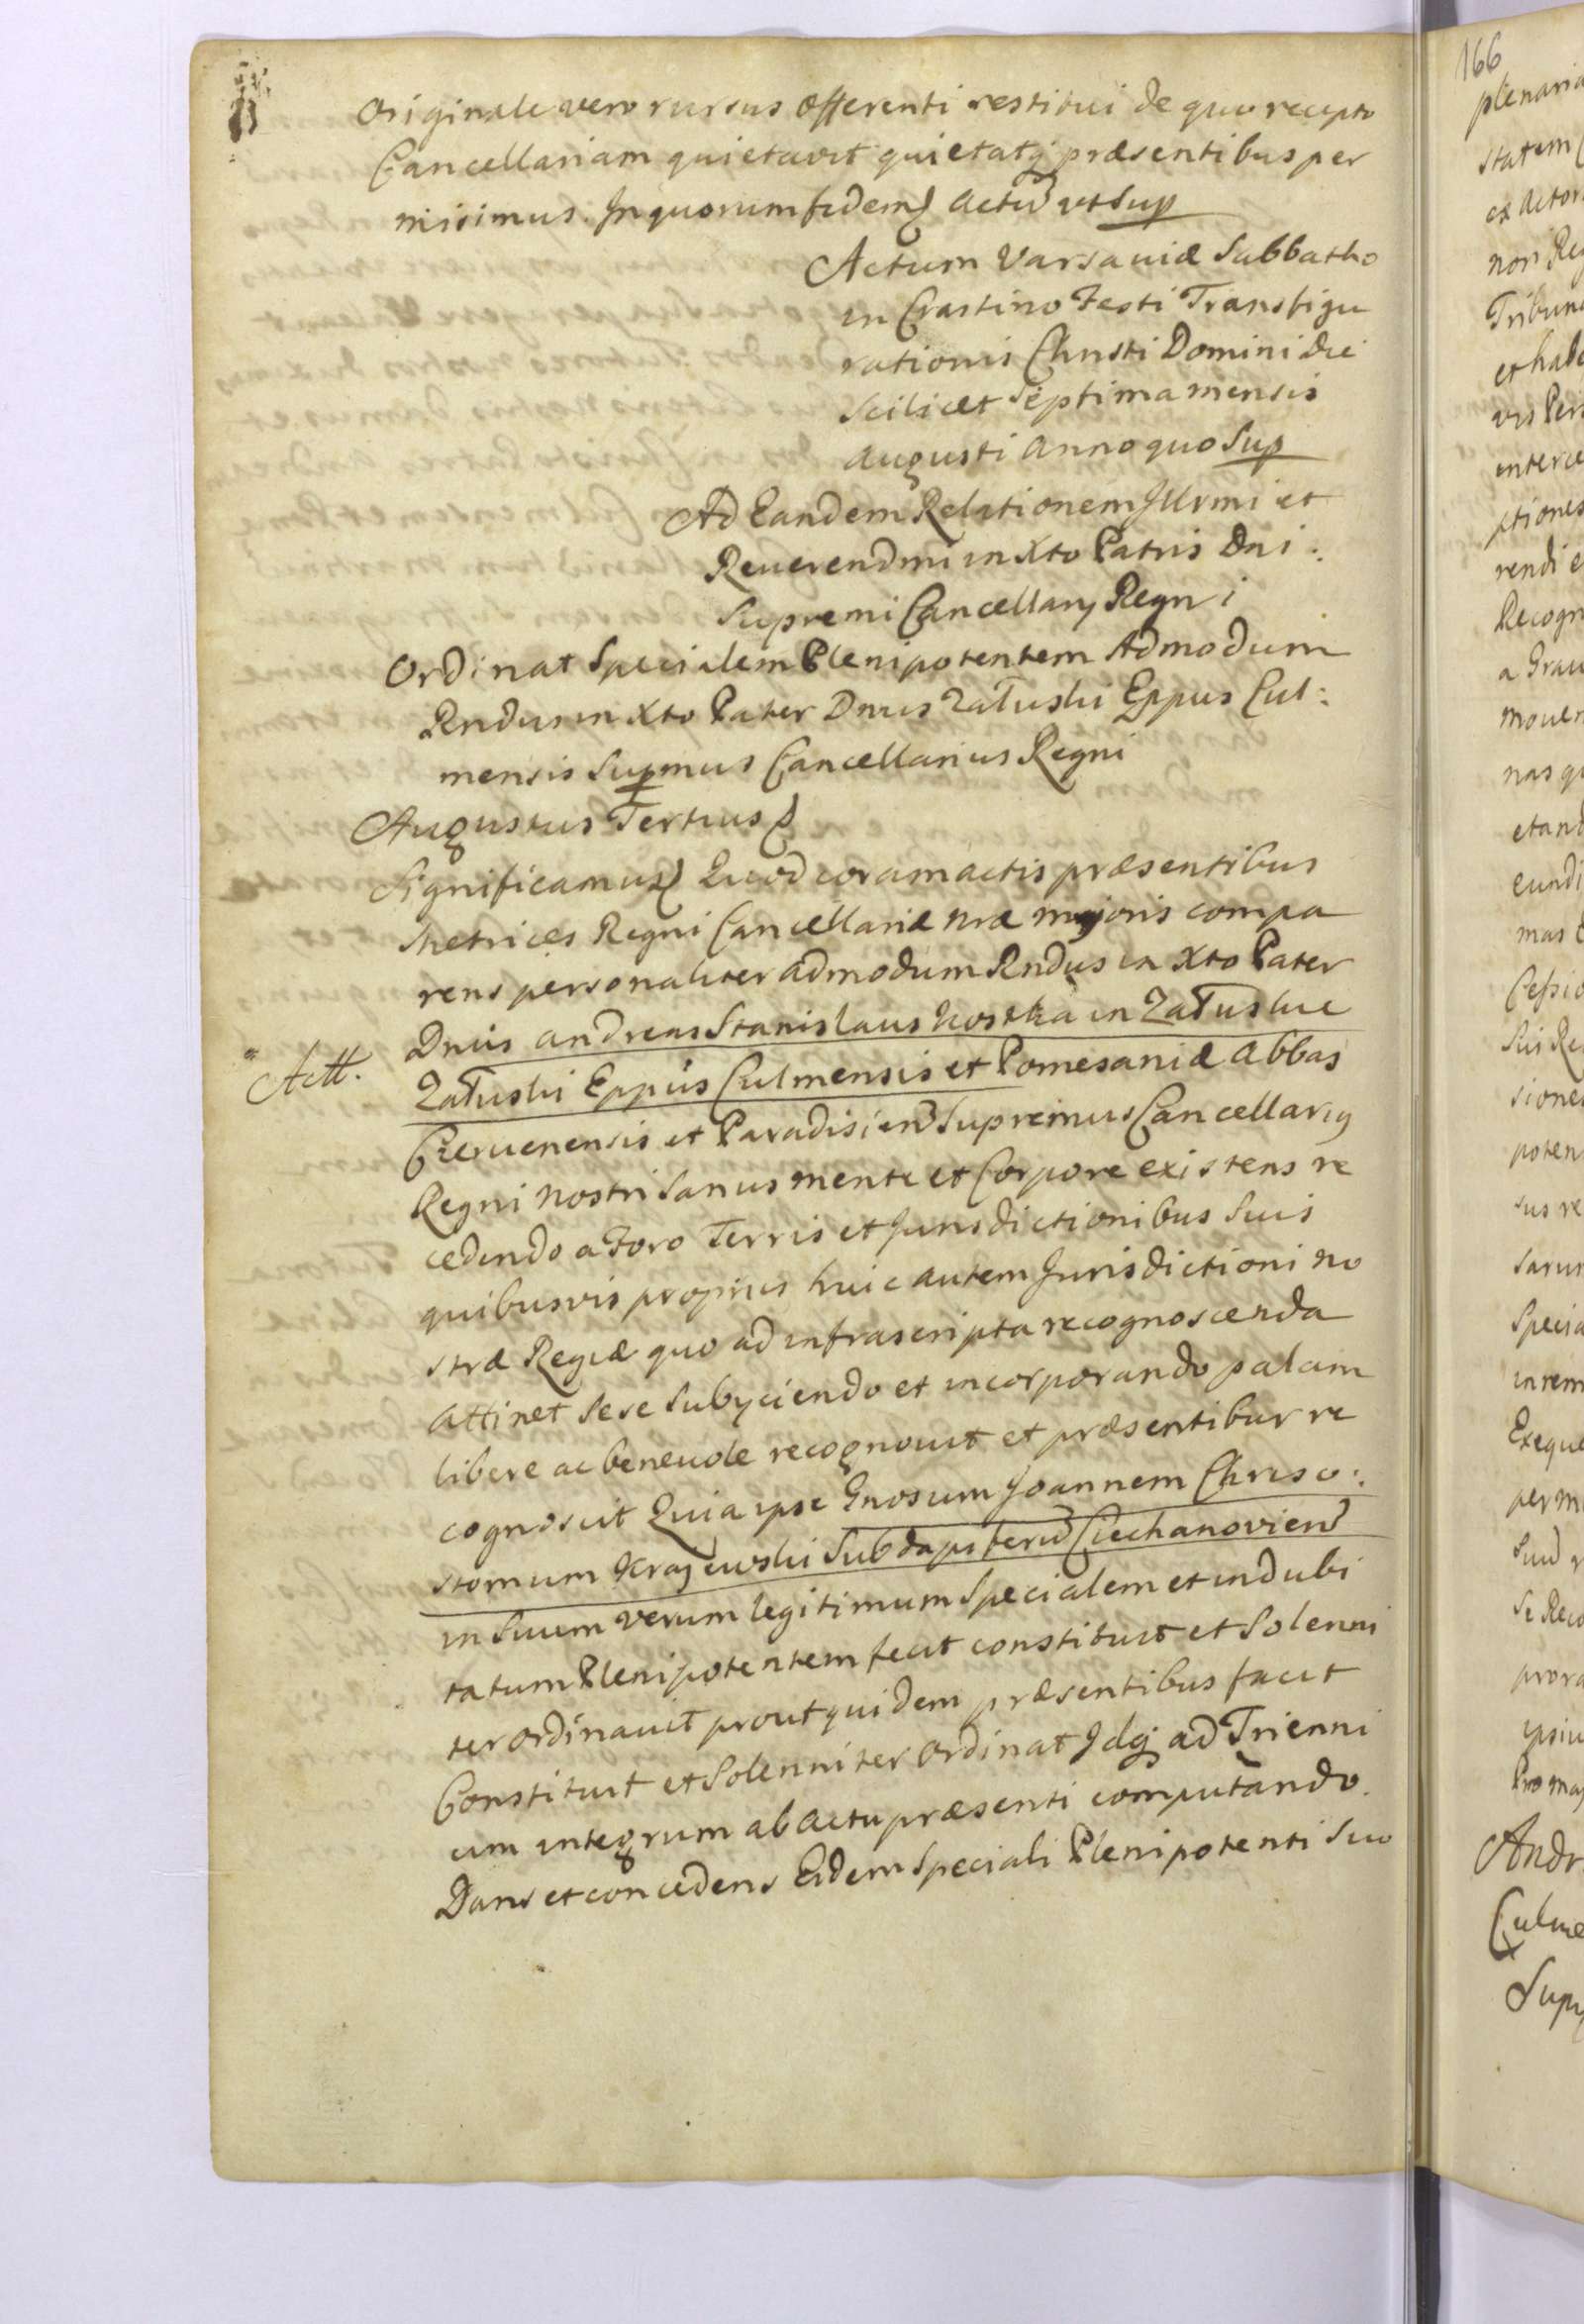 Originale vero rursus offerenti restitui de quo recepto
Cancellariam quietavit quietatq præsentibus per
misimus. In quorum fidem Actū ut Sup
Actum Varsaviæ Sabbatho
in Crastino Festi Transfigu
rationis Christi Domini die
Scilicet Septima mensis
Augusti Anno quo Sup
Ad Eandem Relationem Illrmi et
Reuerendmi in Xto Patris Dni:
Supremi Cancellarij Regni
Ordinat Specialem Plenipotentem Admodum
Rndus in Xto Pater Dnus Załuski Eppus Cul:
mensis Supmus Cancellarius Regni
Augustus Tertius
Significamus Quod coram actis præsentibus
Metrices Regni Cancellariæ nræ majoris compa
rens personaliter admodum Rndus in Xto Pater
Dnus Andreas Stanislaus Kostka in Załuskie
Actt.
Załuski Eppus Culmensis et Pomesaniæ Abbas
Czeruenensis et Paradisien Supremus Cancellarig
Regni nostri Sanus mente et Corpore existens re
cedendo a Foro Terris et Jurisdictionibus Suis
quibusvis proprius huic autem Jurisdictioni no
stræ Regiæ quo ad infrascripta recognoscenda
attinet sese Subyciendo et incorporando palam
libere ac beneuole recognouit et præsentibus re
cognoscit Quia ipse Gnosum Joannem Chriso:
stomum Krajewski Subdapiferū Ciechanovien
in Suum verum legitimum Specialem et indubi
tatum Plenipotentem fecit constituit et Solenni
ter ordinauit prout quidem præsentibus facit
Constituit et Solenniter ordinat Idq ad Trienni
um integrum ab actu præsenti computando.
Dans et concedens Eidem Speciali Plenipotenti Suo
166
plenaria
statem
ex Actor
non Reg
Tribuna
et habe
vis Per
interce
ptiones
rendi e
Recogn
a Grau
mouen
nas q
etand
eundi
mas
Cessio
Suis Re
sione
poten
sus re
sarum
Specia
in rem
Exeque
perm
Suū
Se Reco
prora
ipsiu
Pro maj
Andr
Culme
Sup